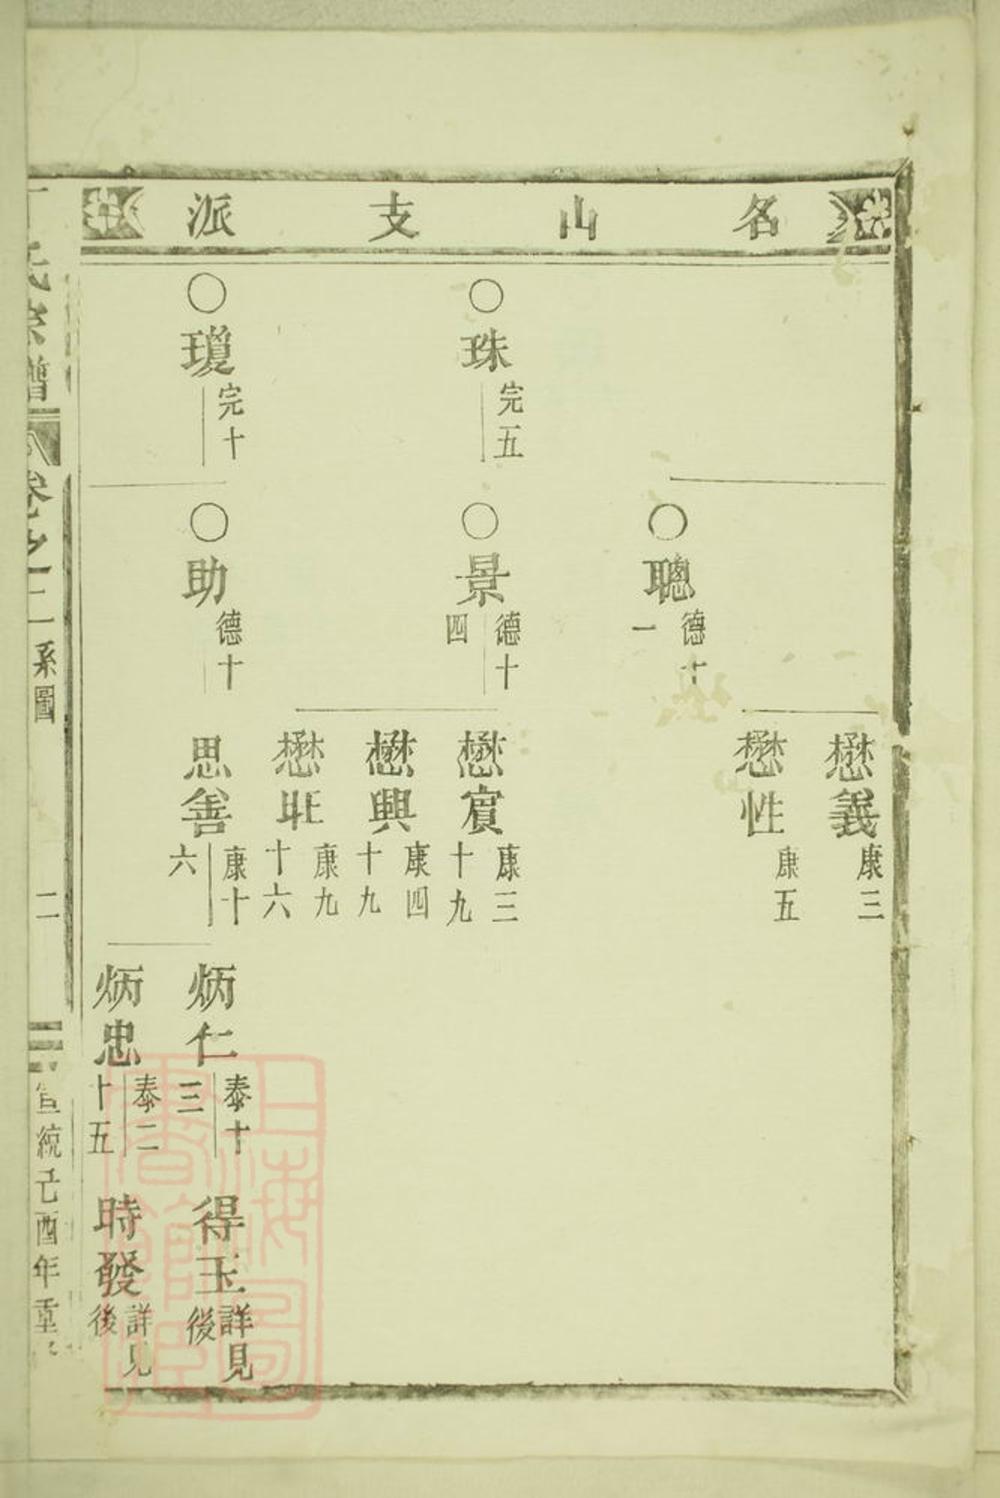 名山支派
懋義 康三
懋性 康五
聰 德十一
珠 完五
景 德十四
懋賔 康三十九
懋興 康四十九
懋旺 康九十六
瓊 完十
助 德十
思善 康十六
炳仁 泰十三
得玉 詳見後
炳忠 泰二十五
時發 詳見後
氏宗譜 卷之二 系圖 二 宣統己酉年重
上海圖書館藏